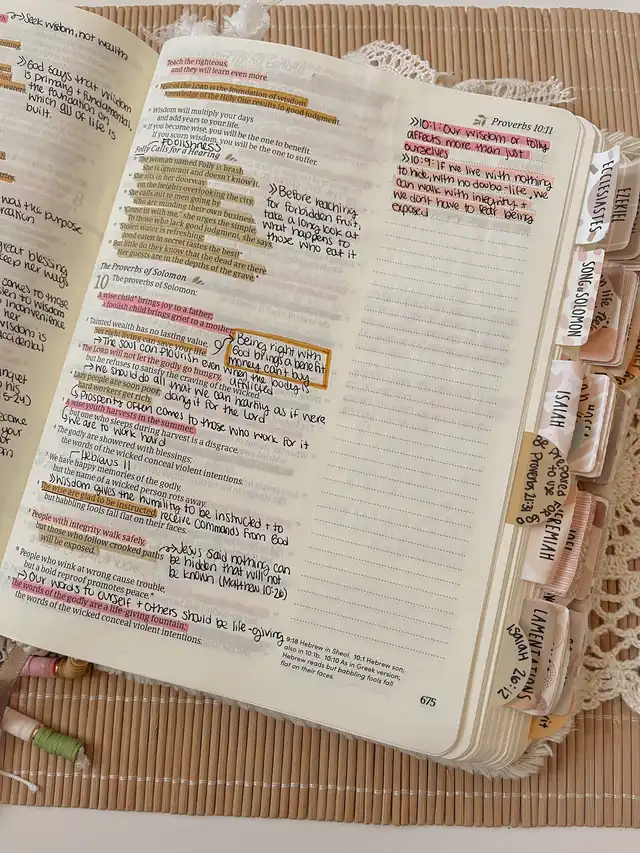 →Seek wisdom, not wealth
»God says that wisdom
is primary + fundamental,
the foundation on
which all of life is
built.
was the purpose
great blessing
keep her ways
comes to those
listen to wisdom
inconvenience
her
wisdom is
accidental
to his
5-24)
become
your
of
Teach the righteous,
and they will learn even more.
Fear of the LORD is the foundation of wisdom.
Knowledge of the Holy One results in good judgment.
Wisdom will multiply your days
and add years to your life.
If you become wise, you will be the one to benefit.
If you scorn wisdom, you will be the one to suffer.
Foolishness
Folly Calls for a Hearing
The woman named Folly is brash.
She is ignorant and doesn't know it.
She sits in her doorway
on the heights overlooking the city.
She calls out to men going by
who are minding their own business.
"Come in with me," she urges the simple.
To those who lack good judgment, she says,
"Stolen water is refreshing;
food eaten in secret tastes the best!"
But little do they know that the dead are there.
Her guests are in the depths of the grave.*
»Before reaching
for forbidden fruit,
take a long look at
what happens to
those who eat it
The Proverbs of Solomon
10 The proverbs of Solomon:
A wise child* brings joy to a father;
a foolish child brings grief to a mother.
Tainted wealth has no lasting value,
but right living can save your life.
→Being right with
God brings a benefit
money can't buy
→The soul can flourish even when the body is
afflicted
The LORD will not let the godly go hungry,
but he refuses to satisfy the craving of the wicked.
→we should do all that we can heartily as if were
doing it for the Lord
Lazy people are soon poor;
hard workers get rich.
↳Prosperity often comes to those who work for it
A wise youth harvests in the summer,
but one who sleeps during harvest is a disgrace.
↳we are to work hard
The godly are showered with blessings;
the words of the wicked conceal violent intentions.
Hebrews 11
We have happy memories of the godly,
but the name of a wicked person rots away.
»Wisdom gives the humility to be instructed + to
receive commands from God
The wise are glad to be instructed,
but babbling fools fall flat on their faces.
People with integrity walk safely,
but those who follow crooked paths
will be exposed.
→Jesus said nothing can
be hidden that will not
be known (Matthew 10:26)
People who wink at wrong cause trouble,
but a bold reproof promotes peace.*
→Our words to ourself + others should be life-giving
The words of the godly are a life-giving fountain;
the words of the wicked conceal violent intentions.
9:18 Hebrew in Sheol. 10:1 Hebrew son;
also in 10:1b. 10:10 As in Greek version;
Hebrew reads but babbling fools fall
flat on their faces.
675
Proverbs 10:11
»10:1: Our wisdom or folly
affects more than just
ourselves
»10:9: If we live with nothing
to hide, with no double-life, we
can walk with integrity +
we don't have to fear being
exposed
ECCLESIASTES
EZEKIEL
SONG of SOLOMON
ISAIAH
prepared
to use
Proverbs 21:31
JEREMIAH
LAMENTATIONS
ISAIAH 26:12